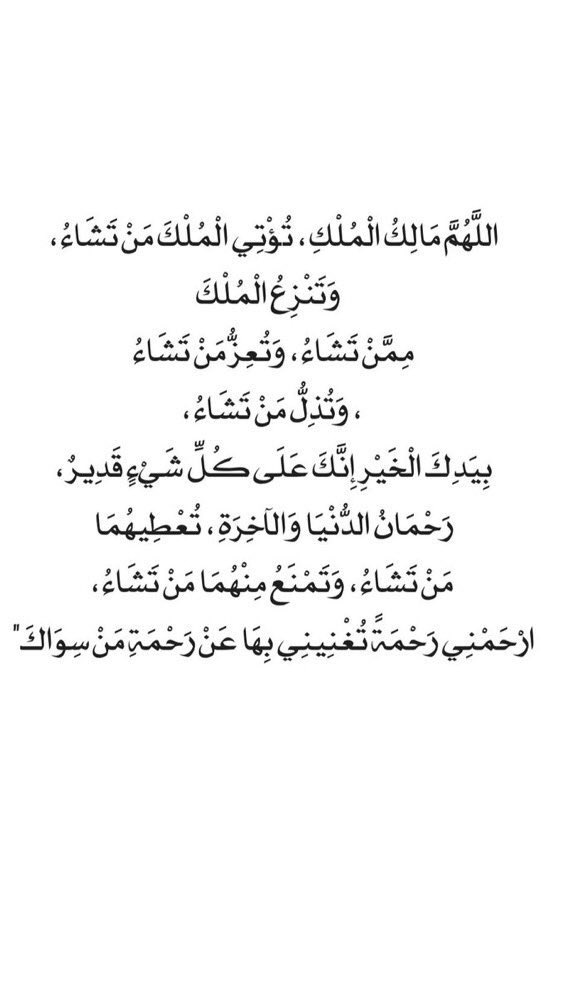 اللَّهُمَّ مَالِكُ الْمُلْكِ، تُؤْتِي الْمُلْكَ مَنْ تَشَاءُ،
وَتَنْزِعُ الْمُلْكَ
مِمَّنْ تَشَاءُ، وَتُعِزُّ مَنْ تَشَاءُ
، وَتُذِلُّ مَنْ تَشَاءُ،
بِيَدِكَ الْخَيْرِ إِنَّكَ عَلَى كُلِّ شَيْءٍ قَدِيرٌ،
رَحْمَانُ الدُّنْيَا وَالآخِرَةِ، تُعْطِيهُمَا
مَنْ تَشَاءُ، وَتَمْنَعُ مِنْهُمَا مَنْ تَشَاءُ،
ارْحَمْنِي رَحْمَةً تُغْنِينِي بِهَا عَنْ رَحْمَةِ مَنْ سِوَاكَ"